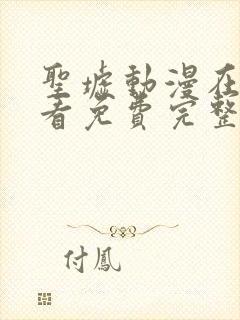 聖墟動漫在
看免費完整
付鳳